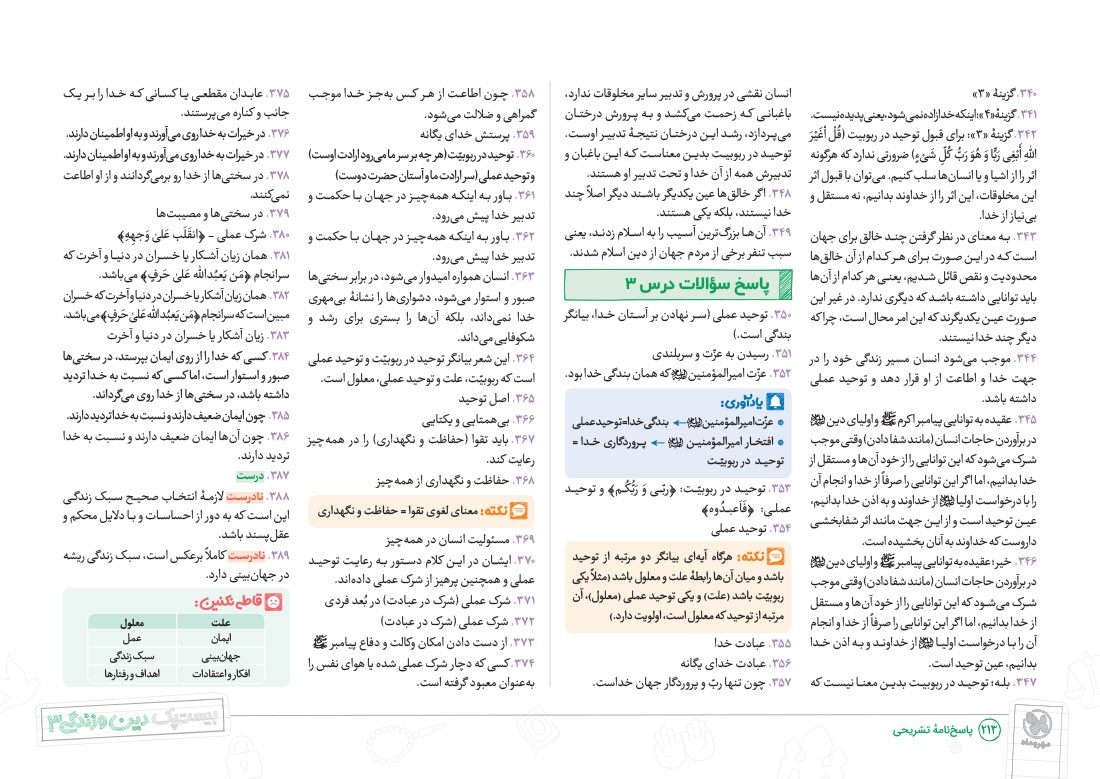 ۳۴۰. گزینهٔ «۳»
۳۴۱. گزینهٔ «۴»: اینکه خدا زاده نمی‌شود، یعنی پدیده نیست.
۳۴۲. گزینهٔ «۳»: برای قبول توحید در ربوبیت (قُل أَغَیرَ
اللهِ أَبْغِی رَبًّا وَ هُوَ رَبُّ کُلِّ شَیءٍ) ضرورتی ندارد که هرگونه
اثر را از اشیا و یا انسان‌ها سلب کنیم. می‌توان با قبول اثر
این مخلوقات، این اثر را از خداوند بدانیم، نه مستقل و
بی‌نیاز از خدا.
۳۴۳. به معنای در نظر گرفتن چند خالق برای جهان
است که در این صورت برای هر کدام از آن خالق‌ها
محدودیت و نقص قائل شدیم، یعنی هر کدام از آن‌ها
باید توانایی داشته باشد که دیگری ندارد. در غیر این
صورت عین یکدیگرند که این امر محال است، چرا که
دیگر چند خدا نیستند.
۳۴۴. موجب می‌شود انسان مسیر زندگی خود را در
جهت خدا و اطاعت از او قرار دهد و توحید عملی
داشته باشد.
۳۴۵. عقیده به توانایی پیامبر اکرم ﷺ و اولیای دین
در برآوردن حاجات انسان (مانند شفا دادن) وقتی موجب
شرک می‌شود که این توانایی را از خود آن‌ها و مستقل از
خدا بدانیم، اما اگر این توانایی را صرفاً از خدا و انجام آن
را با درخواست اولیا از خداوند و به اذن خدا بدانیم،
عین توحید است و از این جهت مانند اثر شفابخشی
داروست که خداوند به آنان بخشیده است.
۳۴۶. خیر؛ عقیده به توانایی پیامبر ﷺ و اولیای دین
در برآوردن حاجات انسان (مانند شفا دادن) وقتی موجب
شرک می‌شود که این توانایی را از خود آن‌ها و مستقل
از خدا بدانیم، اما اگر این توانایی را صرفاً از خدا و انجام
آن را با درخواست اولیا از خداوند و به اذن خدا
بدانیم، عین توحید است.
۳۴۷. بله؛ توحید در ربوبیت بدین معنا نیست که
انسان نقشی در پرورش و تدبیر سایر مخلوقات ندارد،
باغبانی که زحمت می‌کشد و به پرورش درختان
می‌پردازد، رشد این درختان نتیجهٔ تدبیر اوست.
توحید در ربوبیت بدین معناست که این باغبان و
تدبیرش همه از آن خدا و تحت تدبیر او هستند.
۳۴۸. اگر خالق‌ها عین یکدیگر باشند دیگر اصلاً چند
خدا نیستند، بلکه یکی هستند.
۳۴۹. آن‌ها بزرگ‌ترین آسیب را به اسلام زدند، یعنی
سبب تنفر برخی از مردم جهان از دین اسلام شدند.
پاسخ سؤالات درس ۳
۳۵۰. توحید عملی (سر نهادن بر آستان خدا، بیانگر
بندگی است.)
۳۵۱. رسیدن به عزّت و سربلندی
۳۵۲. عزّت امیرالمؤمنین که همان بندگی خدا بود.
یادآوری:
• عزّت امیرالمؤمنین ← بندگی خدا=توحید عملی
• افتخار امیرالمؤمنین ← پروردگاری خدا =
توحید در ربوبیّت
۳۵۳. توحید در ربوبیّت: ﴿رَبّی وَ رَبُّکُم﴾ و توحید
عملی: ﴿فَاَعبدُوه﴾
۳۵۴. توحید عملی
نکته: هرگاه آیه‌ای بیانگر دو مرتبه از توحید
باشد و میان آن‌ها رابطهٔ علت و معلول باشد (مثلاً یکی
ربوبیّت باشد (علت) و یکی توحید عملی (معلول)، آن
مرتبه از توحید که معلول است، اولویت دارد.)
۳۵۵. عبادت خدا
۳۵۶. عبادت خدای یگانه
۳۵۷. چون تنها ربّ و پروردگار جهان خداست.
۳۵۸. چون اطاعت از هر کس به‌جز خدا موجب
گمراهی و ضلالت می‌شود.
۳۵۹. پرستش خدای یگانه
۳۶۰. توحید در ربوبیّت (هر چه بر سر ما می‌رود ارادت اوست)
و توحید عملی (سر ارادت ما و آستان حضرت دوست)
۳۶۱. باور به اینکه همه‌چیز در جهان با حکمت و
تدبیر خدا پیش می‌رود.
۳۶۲. باور به اینکه همه‌چیز در جهان با حکمت و
تدبیر خدا پیش می‌رود.
۳۶۳. انسان همواره امیدوار می‌شود، در برابر سختی‌ها
صبور و استوار می‌شود، دشواری‌ها را نشانهٔ بی‌مهری
خدا نمی‌داند، بلکه آن‌ها را بستری برای رشد و
شکوفایی می‌داند.
۳۶۴. این شعر بیانگر توحید در ربوبیّت و توحید عملی
است که ربوبیّت، علت و توحید عملی، معلول است.
۳۶۵. اصل توحید
۳۶۶. بی‌همتایی و یکتایی
۳۶۷. باید تقوا (حفاظت و نگهداری) را در همه‌چیز
رعایت کند.
۳۶۸. حفاظت و نگهداری از همه‌چیز
نکته: معنای لغوی تقوا = حفاظت و نگهداری
۳۶۹. مسئولیت انسان در همه‌چیز
۳۷۰. ایشان در این کلام دستور به رعایت توحید
عملی و همچنین پرهیز از شرک عملی داده‌اند.
۳۷۱. شرک عملی (شرک در عبادت) در بُعد فردی
۳۷۲. شرک عملی (شرک در عبادت)
۳۷۳. از دست دادن امکان وکالت و دفاع پیامبر ﷺ
۳۷۴. کسی که دچار شرک عملی شده یا هوای نفس را
به‌عنوان معبود گرفته است.
۳۷۵. عابدان مقطعی یا کسانی که خدا را بر یک
جانب و کناره می‌پرستند.
۳۷۶. در خیرات به خدا روی می‌آورند و به او اطمینان دارند.
۳۷۷. در خیرات به خدا روی می‌آورند و به او اطمینان دارند.
۳۷۸. در سختی‌ها از خدا رو برمی‌گردانند و از او اطاعت
نمی‌کنند.
۳۷۹. در سختی‌ها و مصیبت‌ها
۳۸۰. شرک عملی - ﴿انقَلَب عَلیٰ وَجهِهِ﴾
۳۸۱. همان زیان آشکار یا خسران در دنیا و آخرت که
سرانجام ﴿مَن یَعبُدُ الله عَلیٰ حَرفٍ﴾ می‌باشد.
۳۸۲. همان زیان آشکار یا خسران در دنیا و آخرت که خسران
مبین است که سرانجام ﴿مَن یَعبُدُ الله عَلیٰ حَرفٍ﴾ می‌باشد.
۳۸۳. زیان آشکار یا خسران در دنیا و آخرت
۳۸۴. کسی که خدا را از روی ایمان بپرستد، در سختی‌ها
صبور و استوار است، اما کسی که نسبت به خدا تردید
داشته باشد، در سختی‌ها از خدا روی می‌گرداند.
۳۸۵. چون ایمان ضعیف دارند و نسبت به خدا تردید دارند.
۳۸۶. چون آن‌ها ایمان ضعیف دارند و نسبت به خدا
تردید دارند.
۳۸۷. درست
۳۸۸. نادرست لازمهٔ انتخاب صحیح سبک زندگی
این است که به دور از احساسات و با دلایل محکم و
عقل‌پسند باشد.
۳۸۹. نادرست کاملاً برعکس است، سبک زندگی ریشه
در جهان‌بینی دارد.
قاطی نکنین:
علت معلول
ایمان عمل
جهان‌بینی سبک زندگی
افکار و اعتقادات اهداف و رفتارها
مهروماه
۲۱۳ پاسخ‌نامهٔ تشریحی
بیست‌پک دین و زندگی ۳